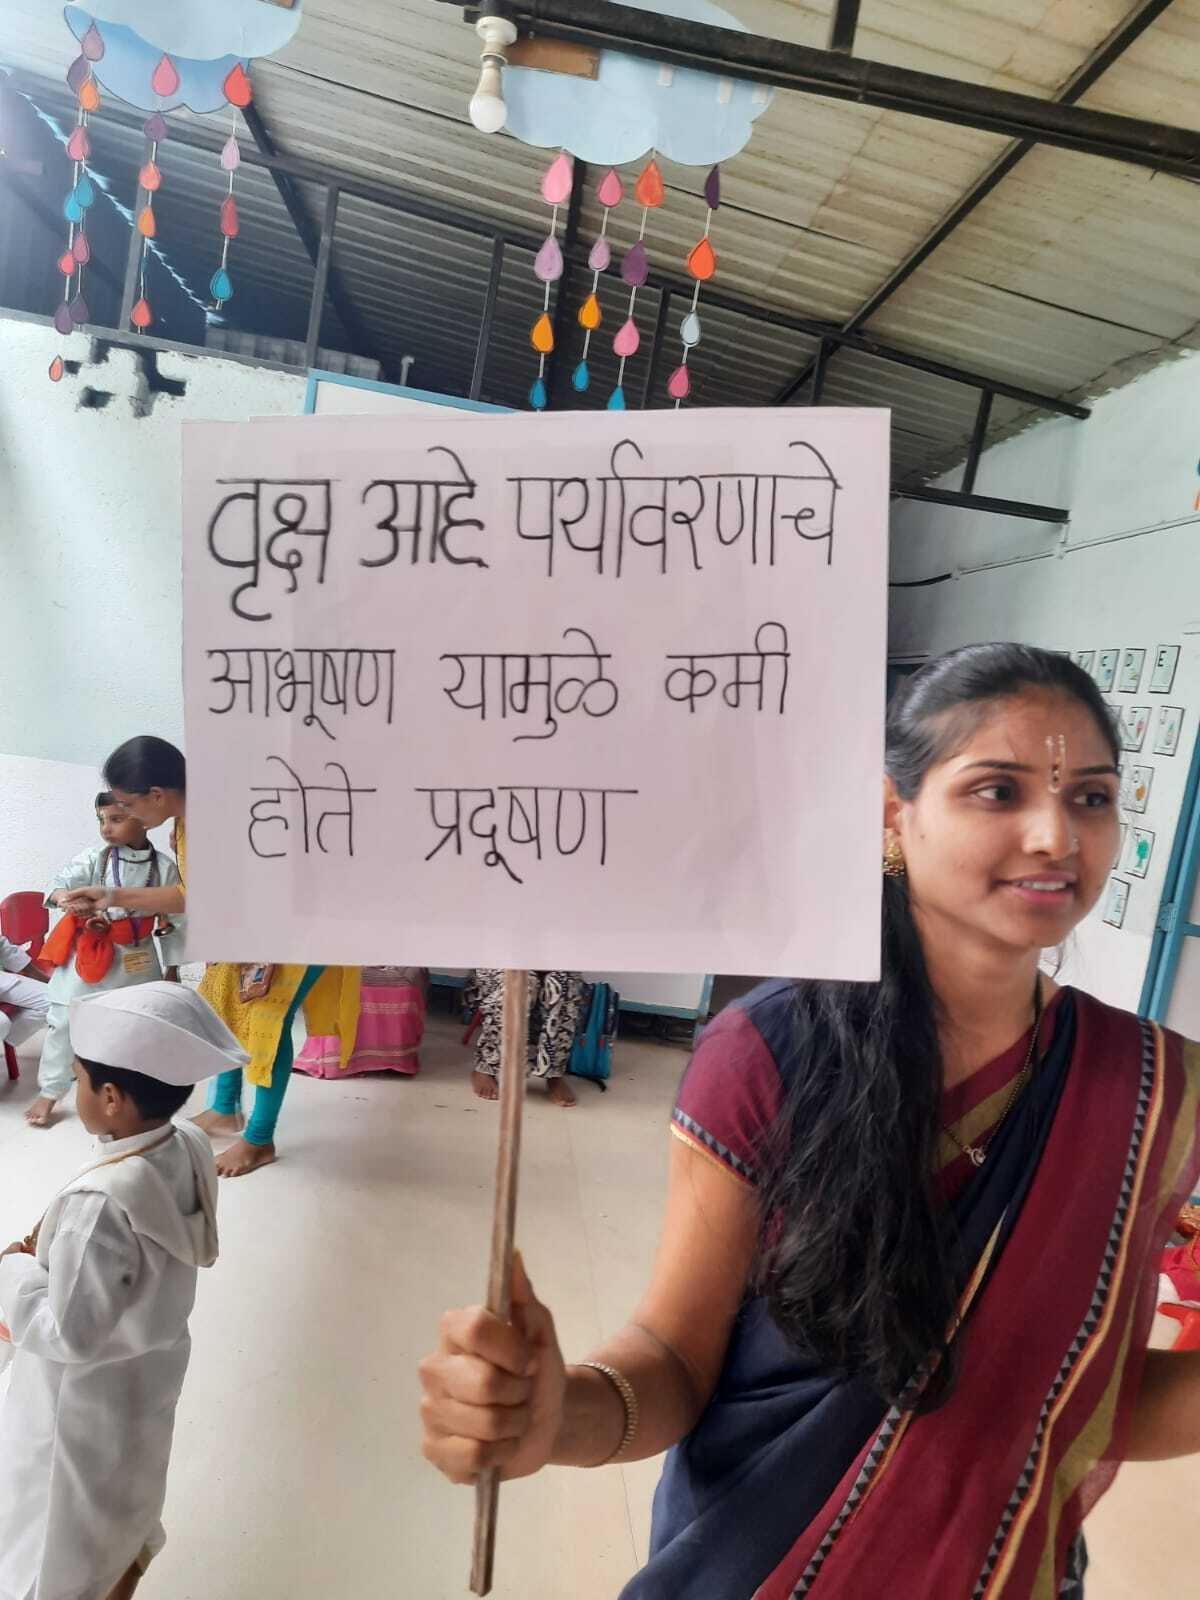 वृक्ष आहे पर्यावरणाचे
आभूषण यामुळे कमी
होते प्रदूषण
C D E